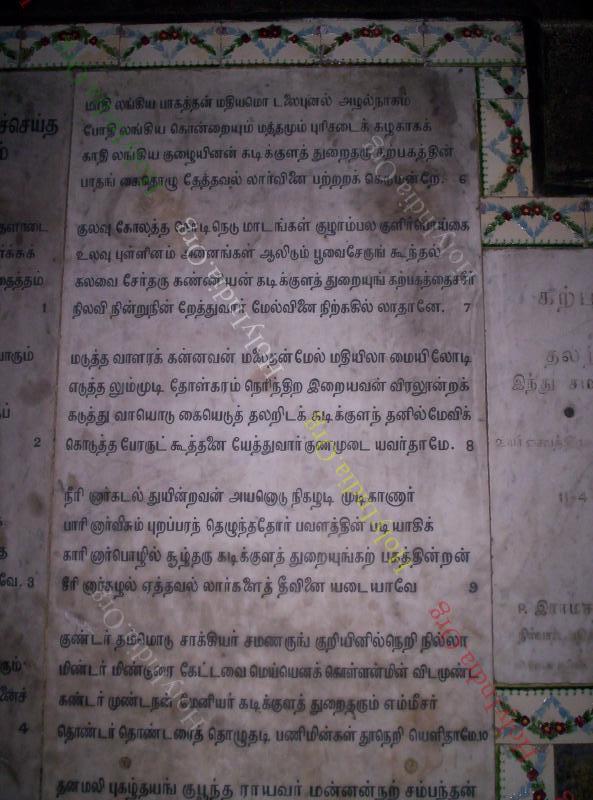 மாதி லங்கிய பாகத்தன் மதியமொ டலைபுனல் அழல்நாகம்
போதி லங்கிய கொன்றையும் மத்தமும் புரிசடைக் கழகாகக்
காதி லங்கிய குழையினன் கடிக்குளத் துறைதரு கற்பகத்தின்
பாதங் கைதொழு தேத்தவல் லார்வினை பற்றறக் கெடுமன்றே. 6
குலவு கோலத்த கொடிநெடு மாடங்கள் குழாம்பல குளிர்பொய்கை
உலவு புள்ளினம் அன்னங்கள் ஆலிடும் பூவைசேருங் கூந்தல்
கலவை சேர்தரு கண்ணியன் கடிக்குளத் துறையுங் கற்பகத்தைச்சீர்
நிலவி நின்றுநின் றேத்துவார் மேல்வினை நிற்ககில் லாதானே. 7
மடுத்த வாளரக் கன்னவன் மலைதன்மேல் மதியிலா மையிலோடி
எடுத்த லும்முடி தோள்கரம் நெரிந்திற இறையவன் விரலூன்றக்
கடுத்து வாயொடு கையெடுத் தலறிடக் கடிக்குளந் தனில்மேவிக்
கொடுத்த பேரருட் கூத்தனை யேத்துவார் குணமுடை யவர்தாமே. 8
நீரி னார்கடல் துயின்றவன் அயனொடு நிகழடி முடிகாணார்
பாரி னார்விசும் புறப்பரந் தெழுந்ததோர் பவளத்தின் படியாகிக்
காரி னார்பொழில் சூழ்தரு கடிக்குளத் துறையுங்கற் பகத்தின்றன்
சீரி னார்கழல் ஏத்தவல் லார்களைத் தீவினை யடையாவே 9
குண்டர் தம்மொடு சாக்கியர் சமணருங் குறியினில்நெறி நில்லா
மிண்டர் மிண்டுரை கேட்டவை மெய்யெனக் கொள்ளன்மின் விடமுண்ட
கண்டர் முண்டநன் மேனியர் கடிக்குளத் துறைதரும் எம்மீசர்
தொண்டர் தொண்டரைத் தொழுதடி பணிமின்கள் தூநெறி யெளிதாமே.10
தனமலி புகழ்தயங் குபூந்த ராயவர் மன்னன்நற் சம்பந்தன்
1
2
3
4
Holy India Org
Holy India Org
Holy India Org
Holy India Org
Holy India Org